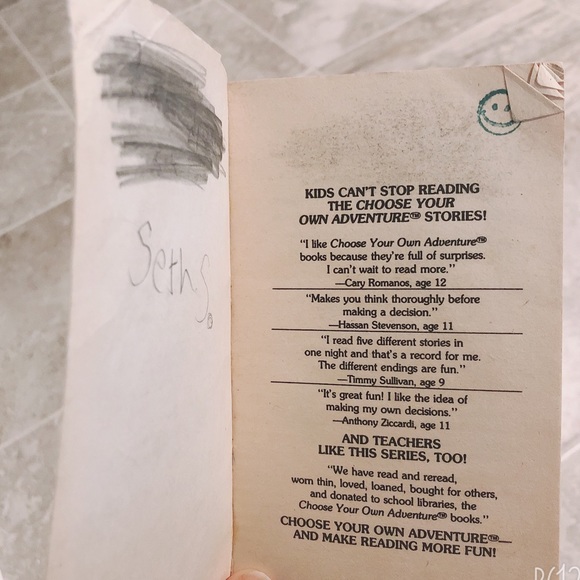 Seth S.
KIDS CAN'T STOP READING
THE CHOOSE YOUR
OWN ADVENTURE™ STORIES!
"I like Choose Your Own Adventure™
books because they're full of surprises.
I can't wait to read more."
—Cary Romanos, age 12
"Makes you think thoroughly before
making a decision."
—Hassan Stevenson, age 11
"I read five different stories in
one night and that's a record for me.
The different endings are fun."
—Timmy Sullivan, age 9
"It's great fun! I like the idea of
making my own decisions."
—Anthony Ziccardi, age 11
AND TEACHERS
LIKE THIS SERIES, TOO!
"We have read and reread,
worn thin, loved, loaned, bought for others,
and donated to school libraries, the
Choose Your Own Adventure™ books."
CHOOSE YOUR OWN ADVENTURE™—
AND MAKE READING MORE FUN!